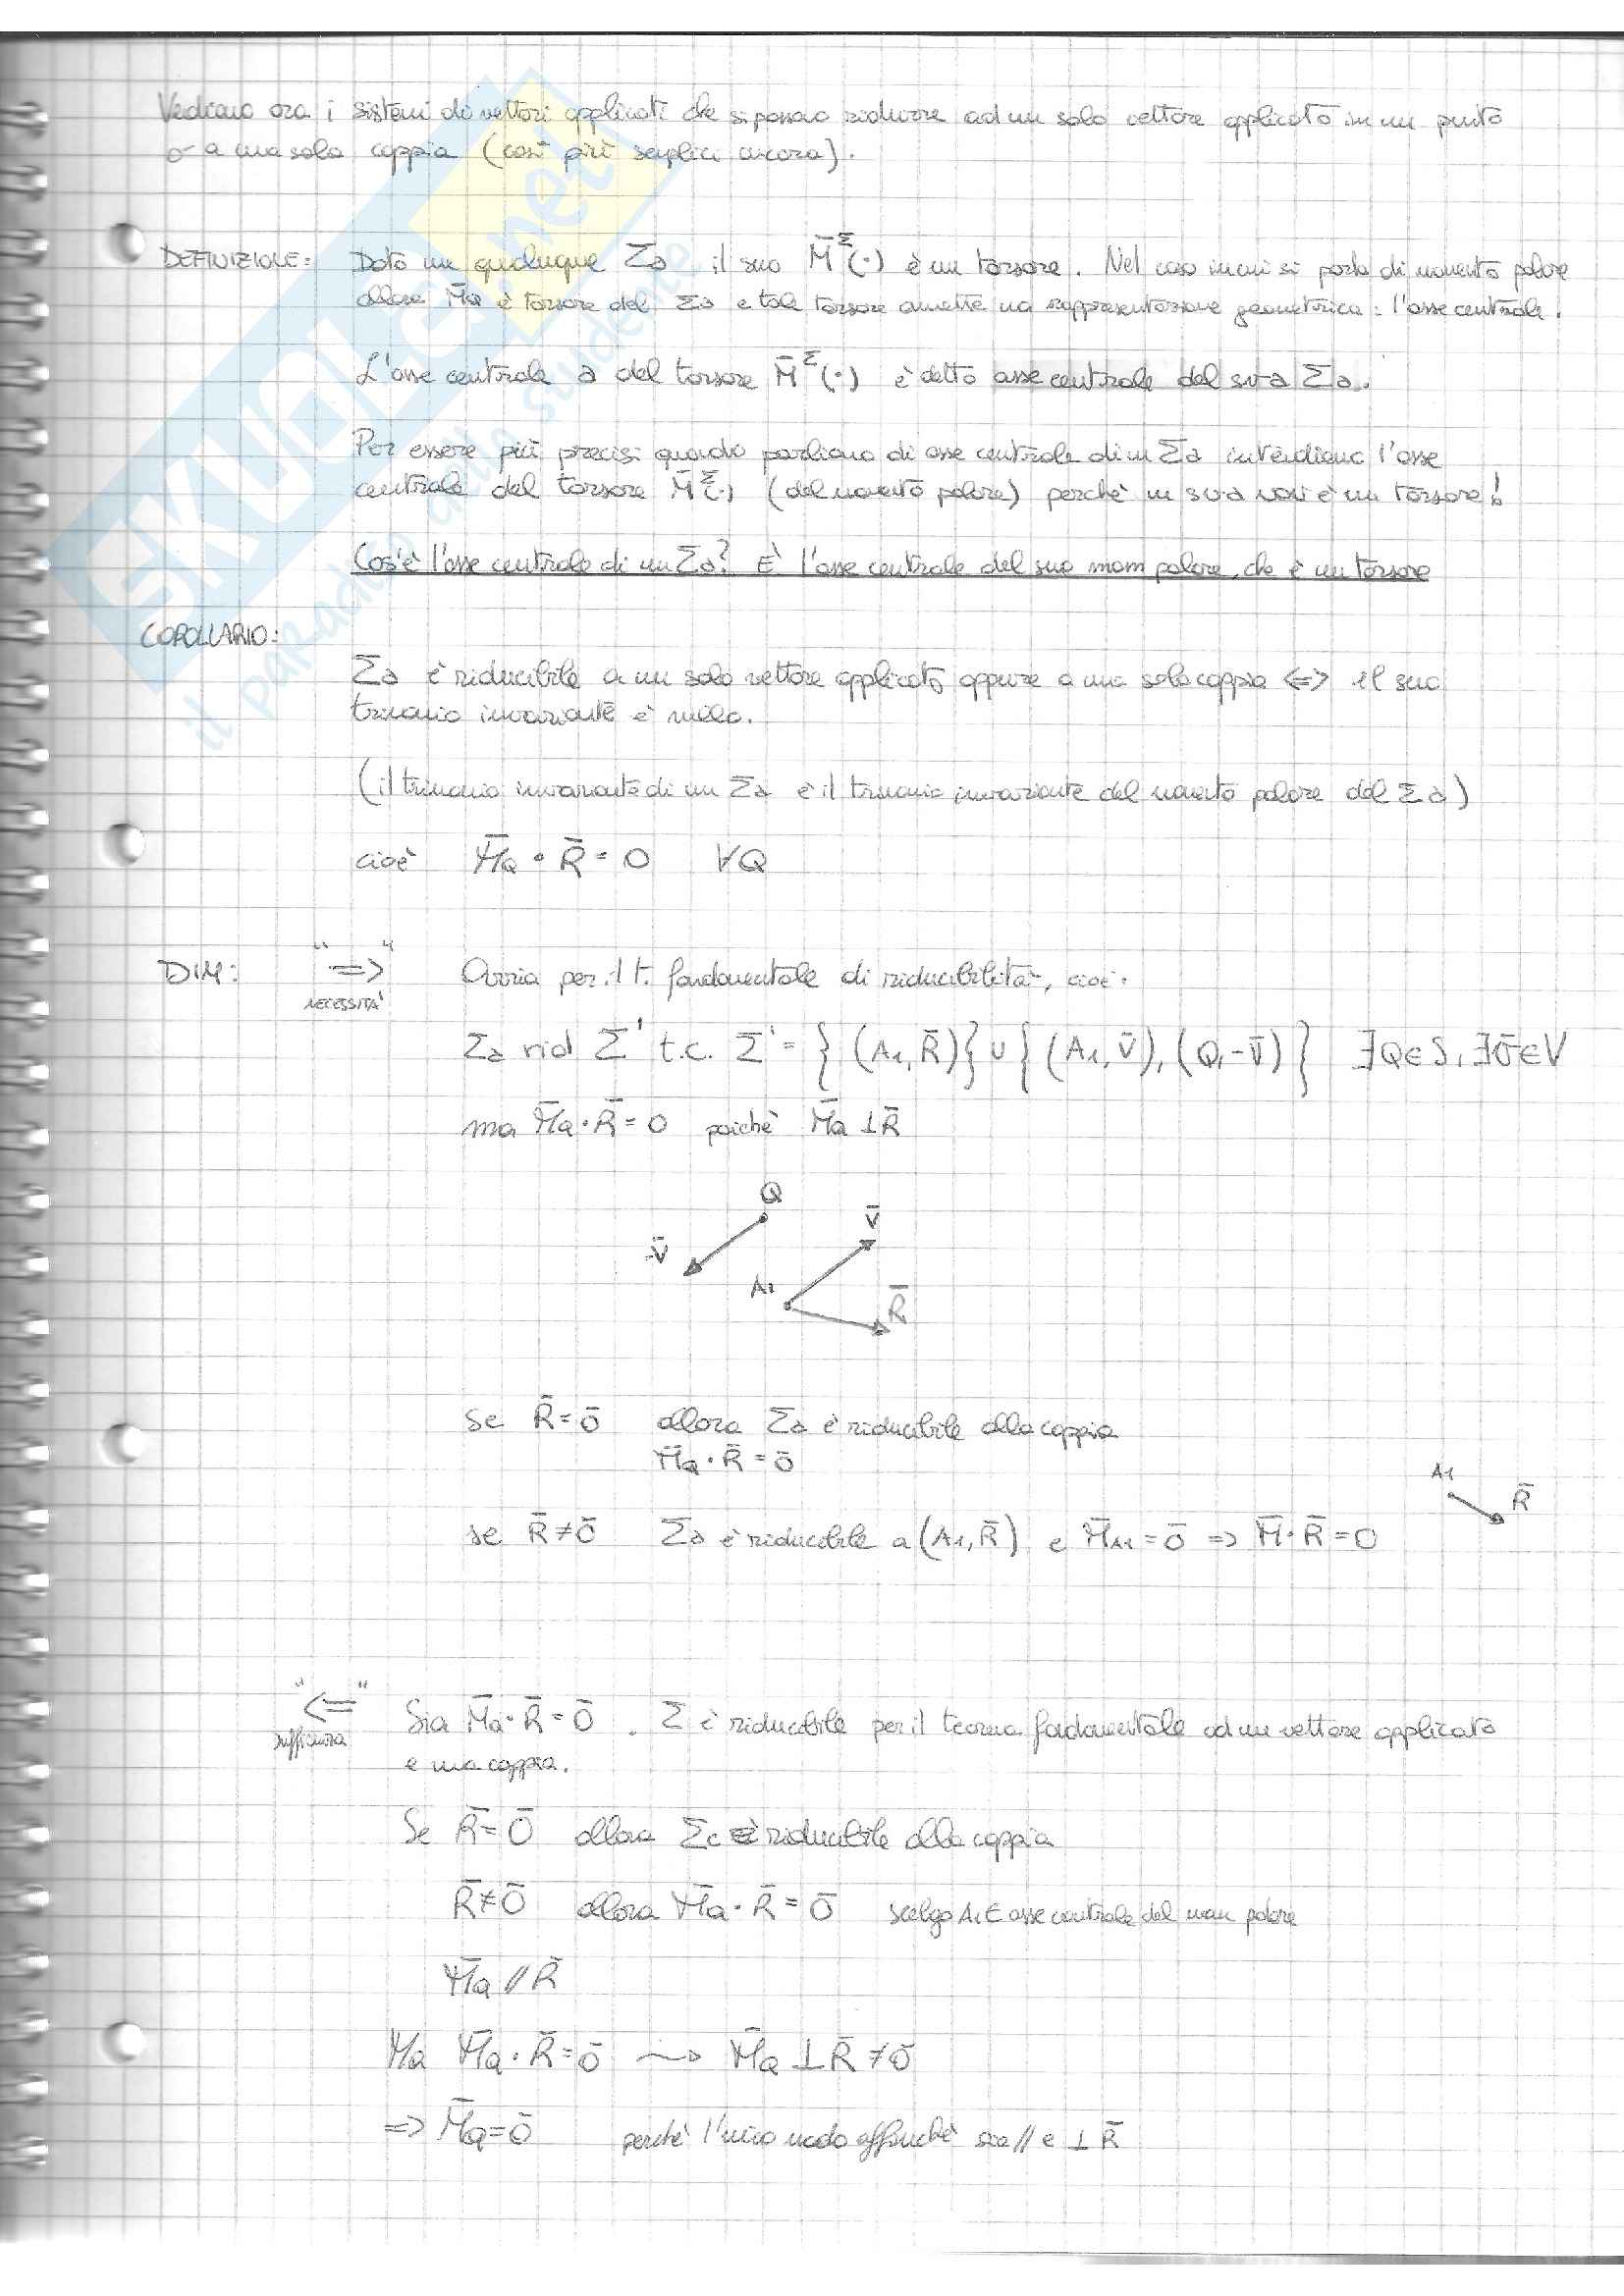 Vediamo ora i sistemi di vettori applicati che si possono ridurre ad un solo vettore applicato in un punto
o a una sola coppia (casi più semplici ancora).
DEFINIZIONE: Dato un qualunque Σa il suo M̄^Σ(·) è un torsore. Nel caso in cui si parla di momento polare
allora M̄Q è torsore del Σa e tale torsore ammette una rappresentazione geometrica: l'asse centrale.
L'asse centrale a del torsore M̄^Σ(·) è detto asse centrale del sva Σa.
Per essere più precisi quando parliamo di asse centrale di un Σa intendiamo l'asse
centrale del torsore M̄^Σ(·) (del momento polare) perchè un sva non è un torsore!
Cos'è l'asse centrale di un Σa? È l'asse centrale del suo mom polare, che è un torsore
COROLLARIO:
Σa è riducibile a un solo vettore applicato oppure a una sola coppia <=> il suo
trinomio invariante è nullo.
(il trinomio invariante di un Σa è il trinomio invariante del momento polare del Σa)
cioè M̄Q · R̄ = 0 ∀Q
DIM: "=>" Ovvia per il t. fondamentale di riducibilità, cioè:
NECESSITÀ
Σa rid Σ' t.c. Σ' = { (A1, R̄) } ∪ { (A1, v̄), (Q, -v̄) } ∃Q∈S, ∃v̄∈V
ma M̄Q · R̄ = 0 poichè M̄Q ⊥ R̄
Q
v̄
-v̄
A1
R̄
Se R̄ = ō allora Σa è riducibile alla coppia
M̄Q · R̄ = ō
A1
R̄
se R̄ ≠ ō Σa è riducibile a (A1, R̄) e M̄A1 = ō => M̄ · R̄ = 0
"<=" Sia M̄Q · R̄ = ō. Σ è riducibile per il teorema fondamentale ad un vettore applicato
sufficienza
e una coppia.
Se R̄ = ō allora Σ è riducibile alla coppia
R̄ ≠ ō allora M̄Q · R̄ = ō scelgo A1 ∈ asse centrale del mom polare
M̄Q // R̄
Ma M̄Q · R̄ = ō ⇝ M̄Q ⊥ R̄ ≠ ō
=> M̄Q = ō perchè l'unico modo affinchè sia // e ⊥ R̄
SKUOLA.net
il paradiso dello studente